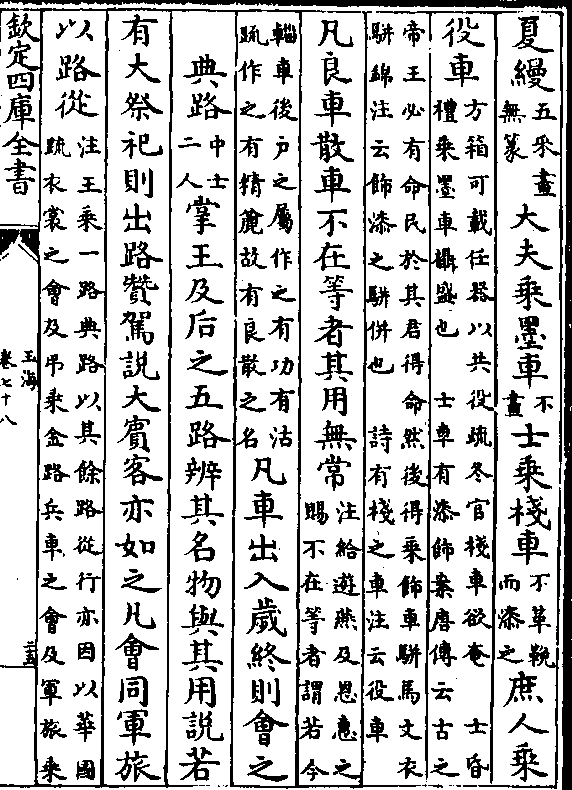 夏縵五采畫無篆大夫乘墨車不畫士乘棧車不革鞔而漆之庶人乘
役車方箱可載任器以共役疏冬官棧車欲弇 士昏禮乘墨車攝盛也 士車有漆飾案唐傳云古之
帝王必有命民於其君得命然後得乘飾車駢馬文衣駢錦注云飾漆之駢併也 詩有棧之車注云役車
凡良車散車不在等者其用無常注給遊燕及恩惠之賜不在等者謂若今
輜車後戶之屬作之有功有沽疏作之有精麄故有良散之名凡車出入歲終則會之
典路中士二人掌王及后之五路辨其名物與其用說若
有大祭祀則出路贊駕說大賓客亦如之凡會同軍旅
以路從注王乘一路典路以其餘路從行亦因以華國疏衣裳之會及弔乘金路兵車之會及軍旅乘
欽定四庫全書
玉海
卷七十八